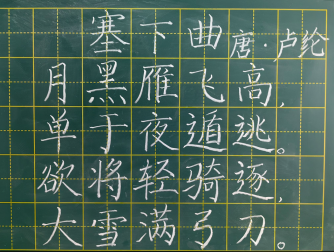 塞下曲 唐·卢纶
月黑雁飞高,
单于夜遁逃。
欲将轻骑逐,
大雪满弓刀。